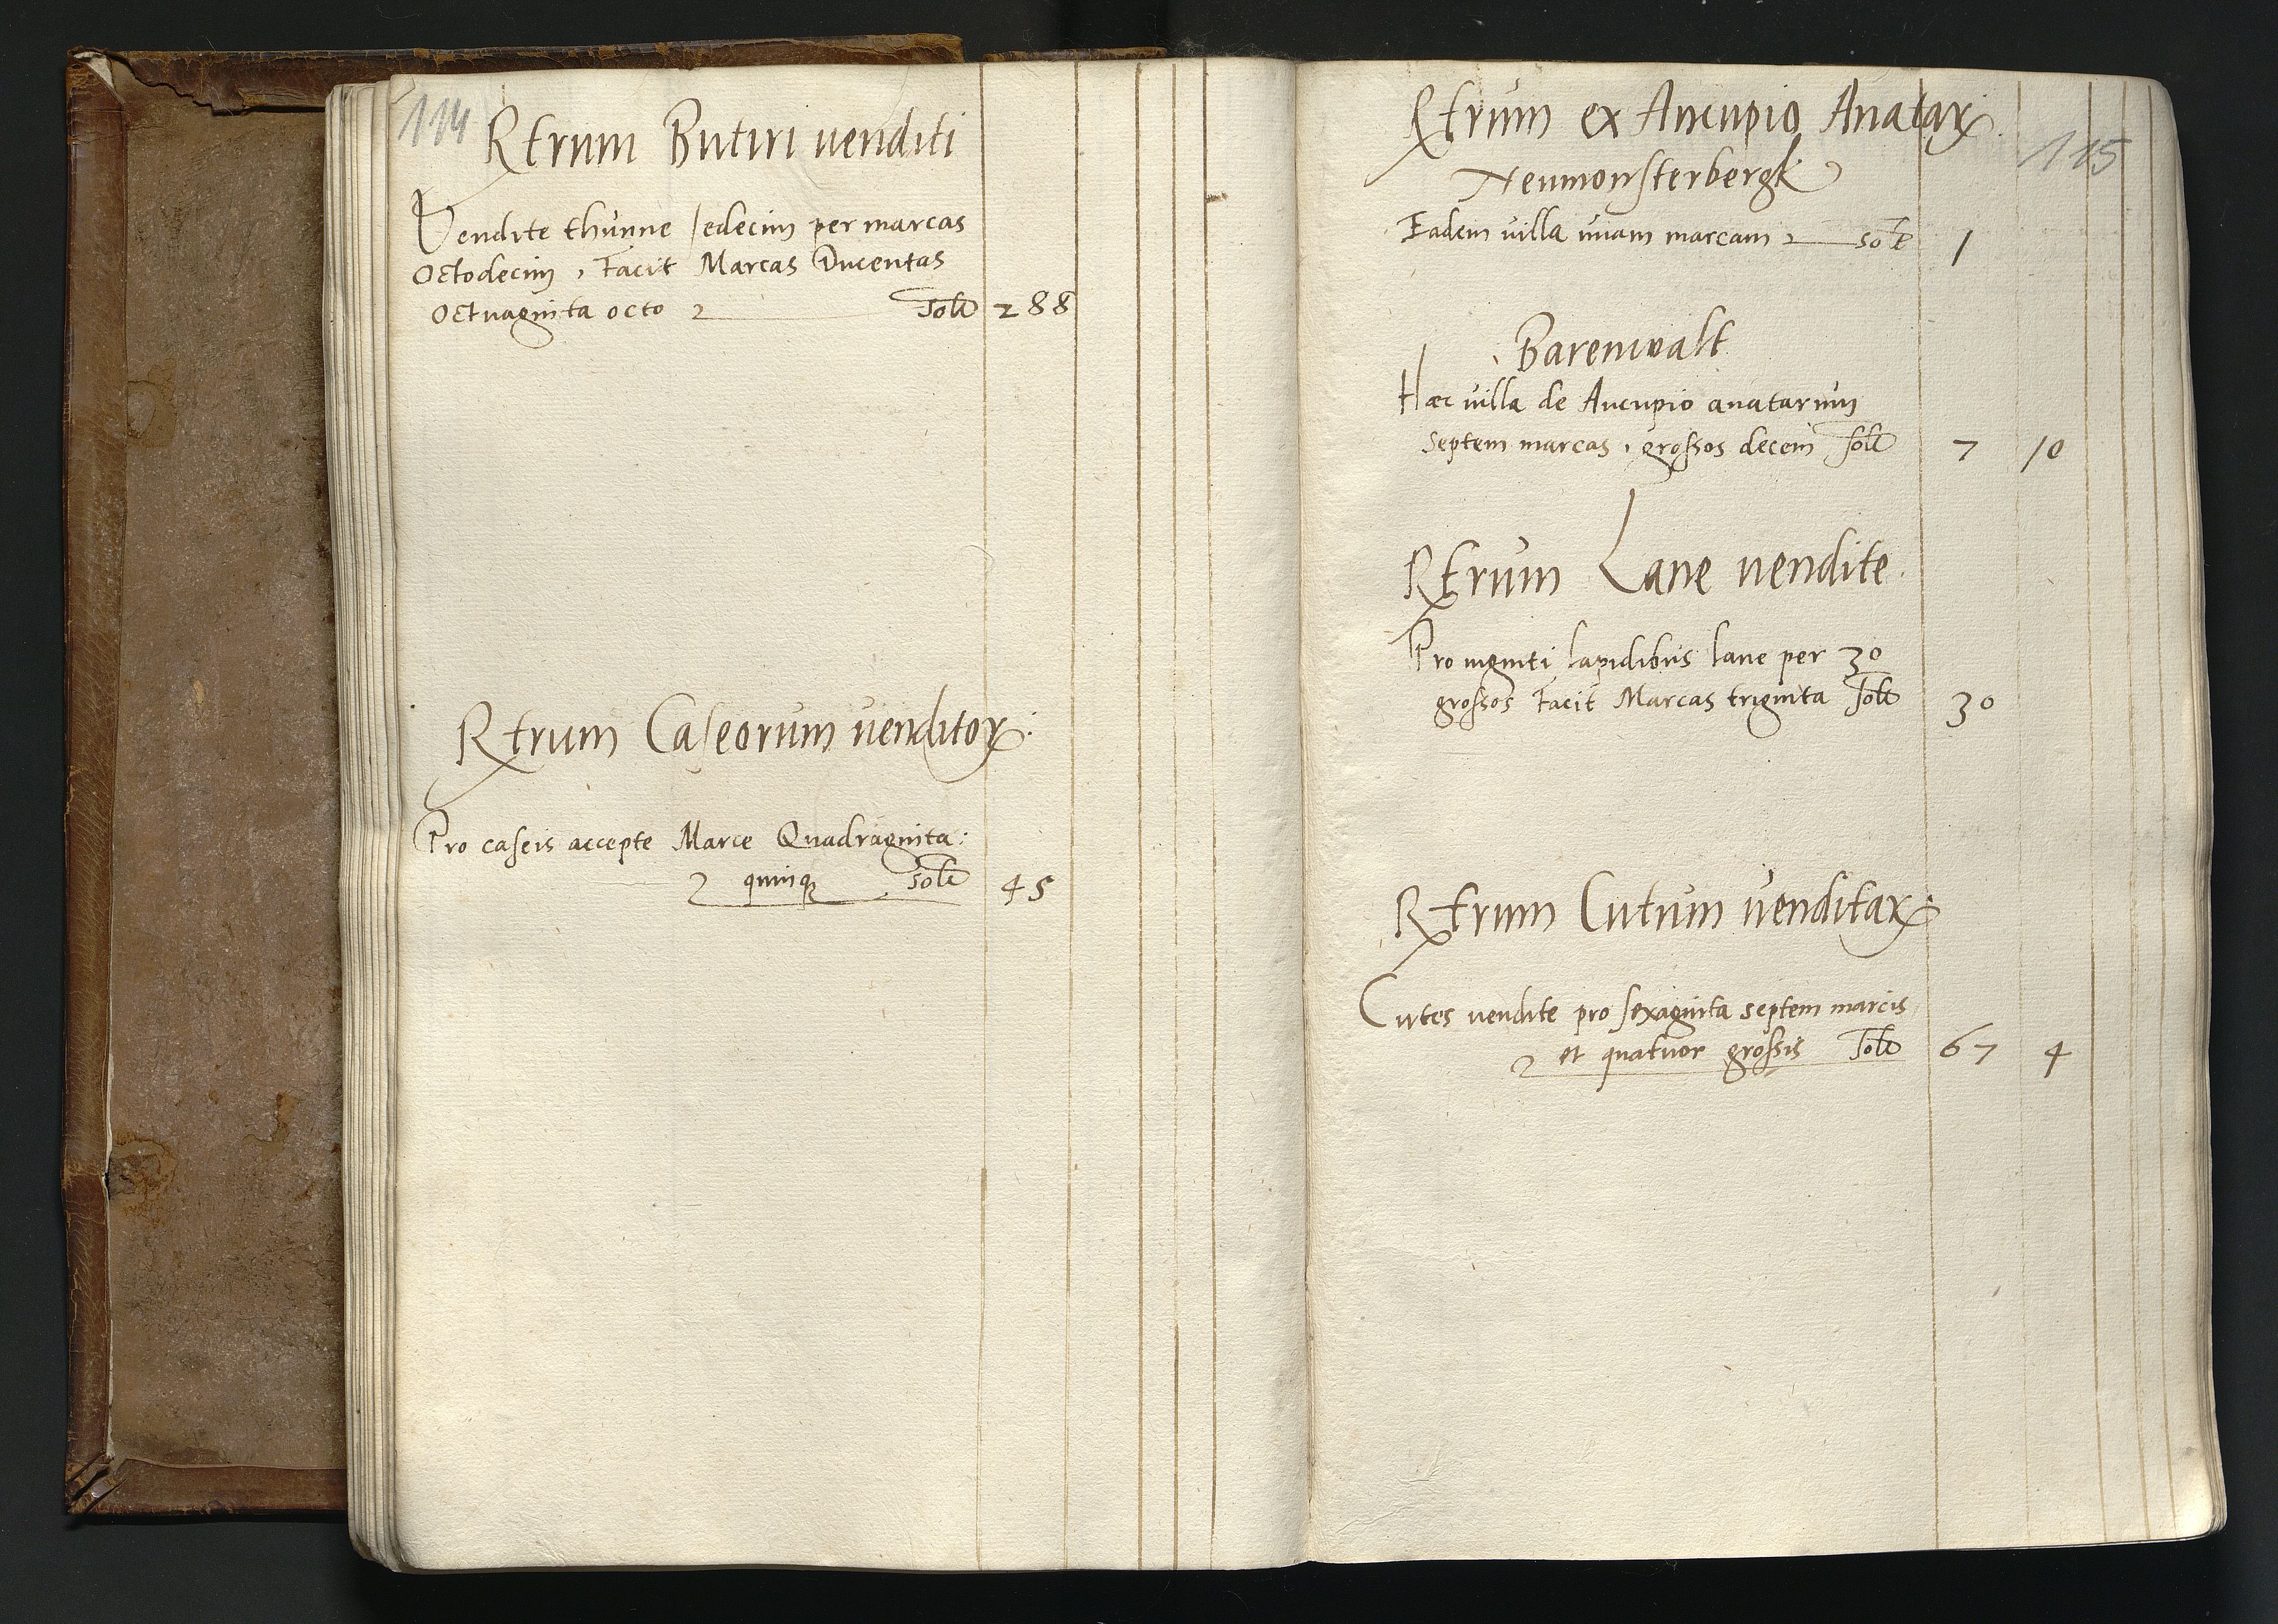 114
Rtrum Butiri venditi
Vendite thunne sedecim per marcas
Octodecim, Facit Marcas Ducentas
Octuaginta octo Solt 288
Rtrum Caseorum venditoꝝ:
Pro caseis accepte Marce Quadraginta:
quinqꝫ solt 45
115
Rtrum ex Aucupio Anataꝝ
Neumonsterbergk
Eadem villa unam marcam solt 1
Barenwalt
Hæc villa de Aucupio anatarum
septem marcas, grossos decem solt 7 10
Rtrum Lane vendite
Pro viginti lapidibus lane per 30
grossos Facit Marcas triginta Solt 30
Rtrum Cutum venditaꝝ:
Cutes vendite pro sexaginta septem marcis
et quatuor grossis Solt 67 4